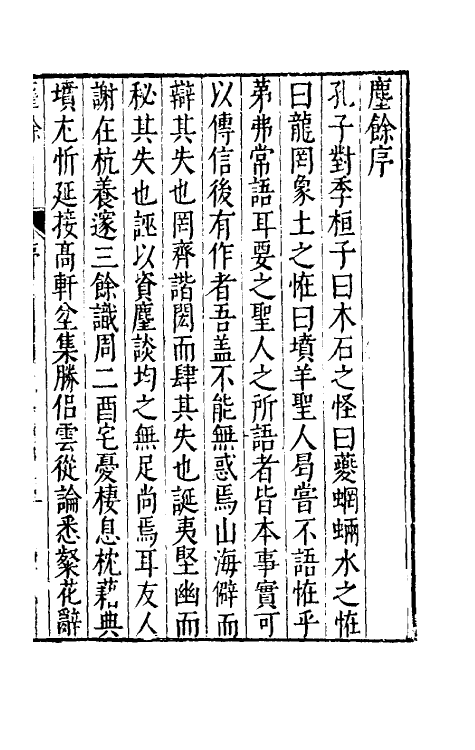 麈餘序
孔子對季桓子曰木石之怪曰夔蝄蜽水之恠
曰龍罔象土之恠曰墳羊聖人曷嘗不語恠乎
苐弗常語耳要之聖人之所語者皆本事實可
以傳信後有作者吾盖不能無惑焉山海僻而
辯其失也罔齊諧閎而肆其失也誕夷堅幽而
秘其失也誣以資麈談均之無足尚焉耳友人
謝在杭養邃三餘識周二酉宅憂棲息枕藉典
墳尢忻延接高軒坌集勝侶雲從論悉粲花辭